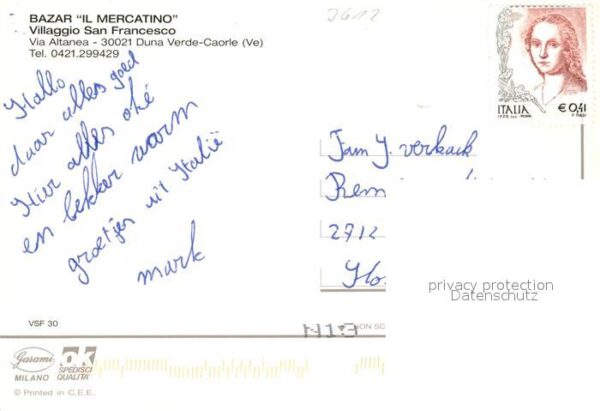 BAZAR "IL MERCATINO"
Villaggio San Francesco
Via Altanea - 30021 Duna Verde-Caorle (Ve)
Tel. 0421.299429
Hallo
daar alles goed
Hier alles oké
en lekker warm
groetjes uit Italië
mark
ITALIA
€ 0,41
Fam J. verkack
Rem
2712
privacy protection
Datenschutz
VSF 30
NON SC
Garami
MILANO
OK
SPEDISCI
QUALITA'
© Printed in C.E.E.